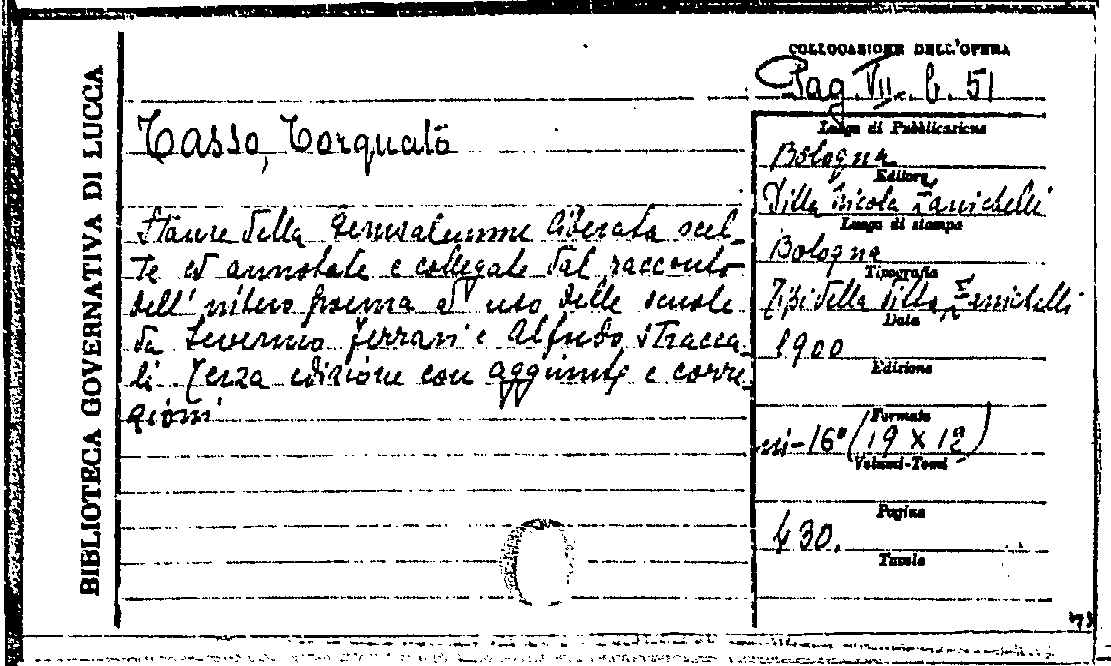 BIBLIOTECA GOVERNATIVA DI LUCCA
COLLOCAZIONE DELL'OPERA
Pag. VII. b. 51
Tasso, Torquato
Stanze della Gerusalemme liberata scel-
te ed annotate e collegate dal racconto
dell'intero poema ad uso delle scuole
da Severino Ferrari e Alfredo Stracca-
li Terza edizione con aggiunte e corre-
zioni
Luogo di Pubblicazione
Bologna
Editore
Ditta Nicola Zanichelli
Luogo di stampa
Bologna
Tipografia
Tipi della ditta Zanichelli
Data
1900
Edizione
Formato
in-16° (19 x 12)
Volumi-Tomi
Pagine
430.
Tavole